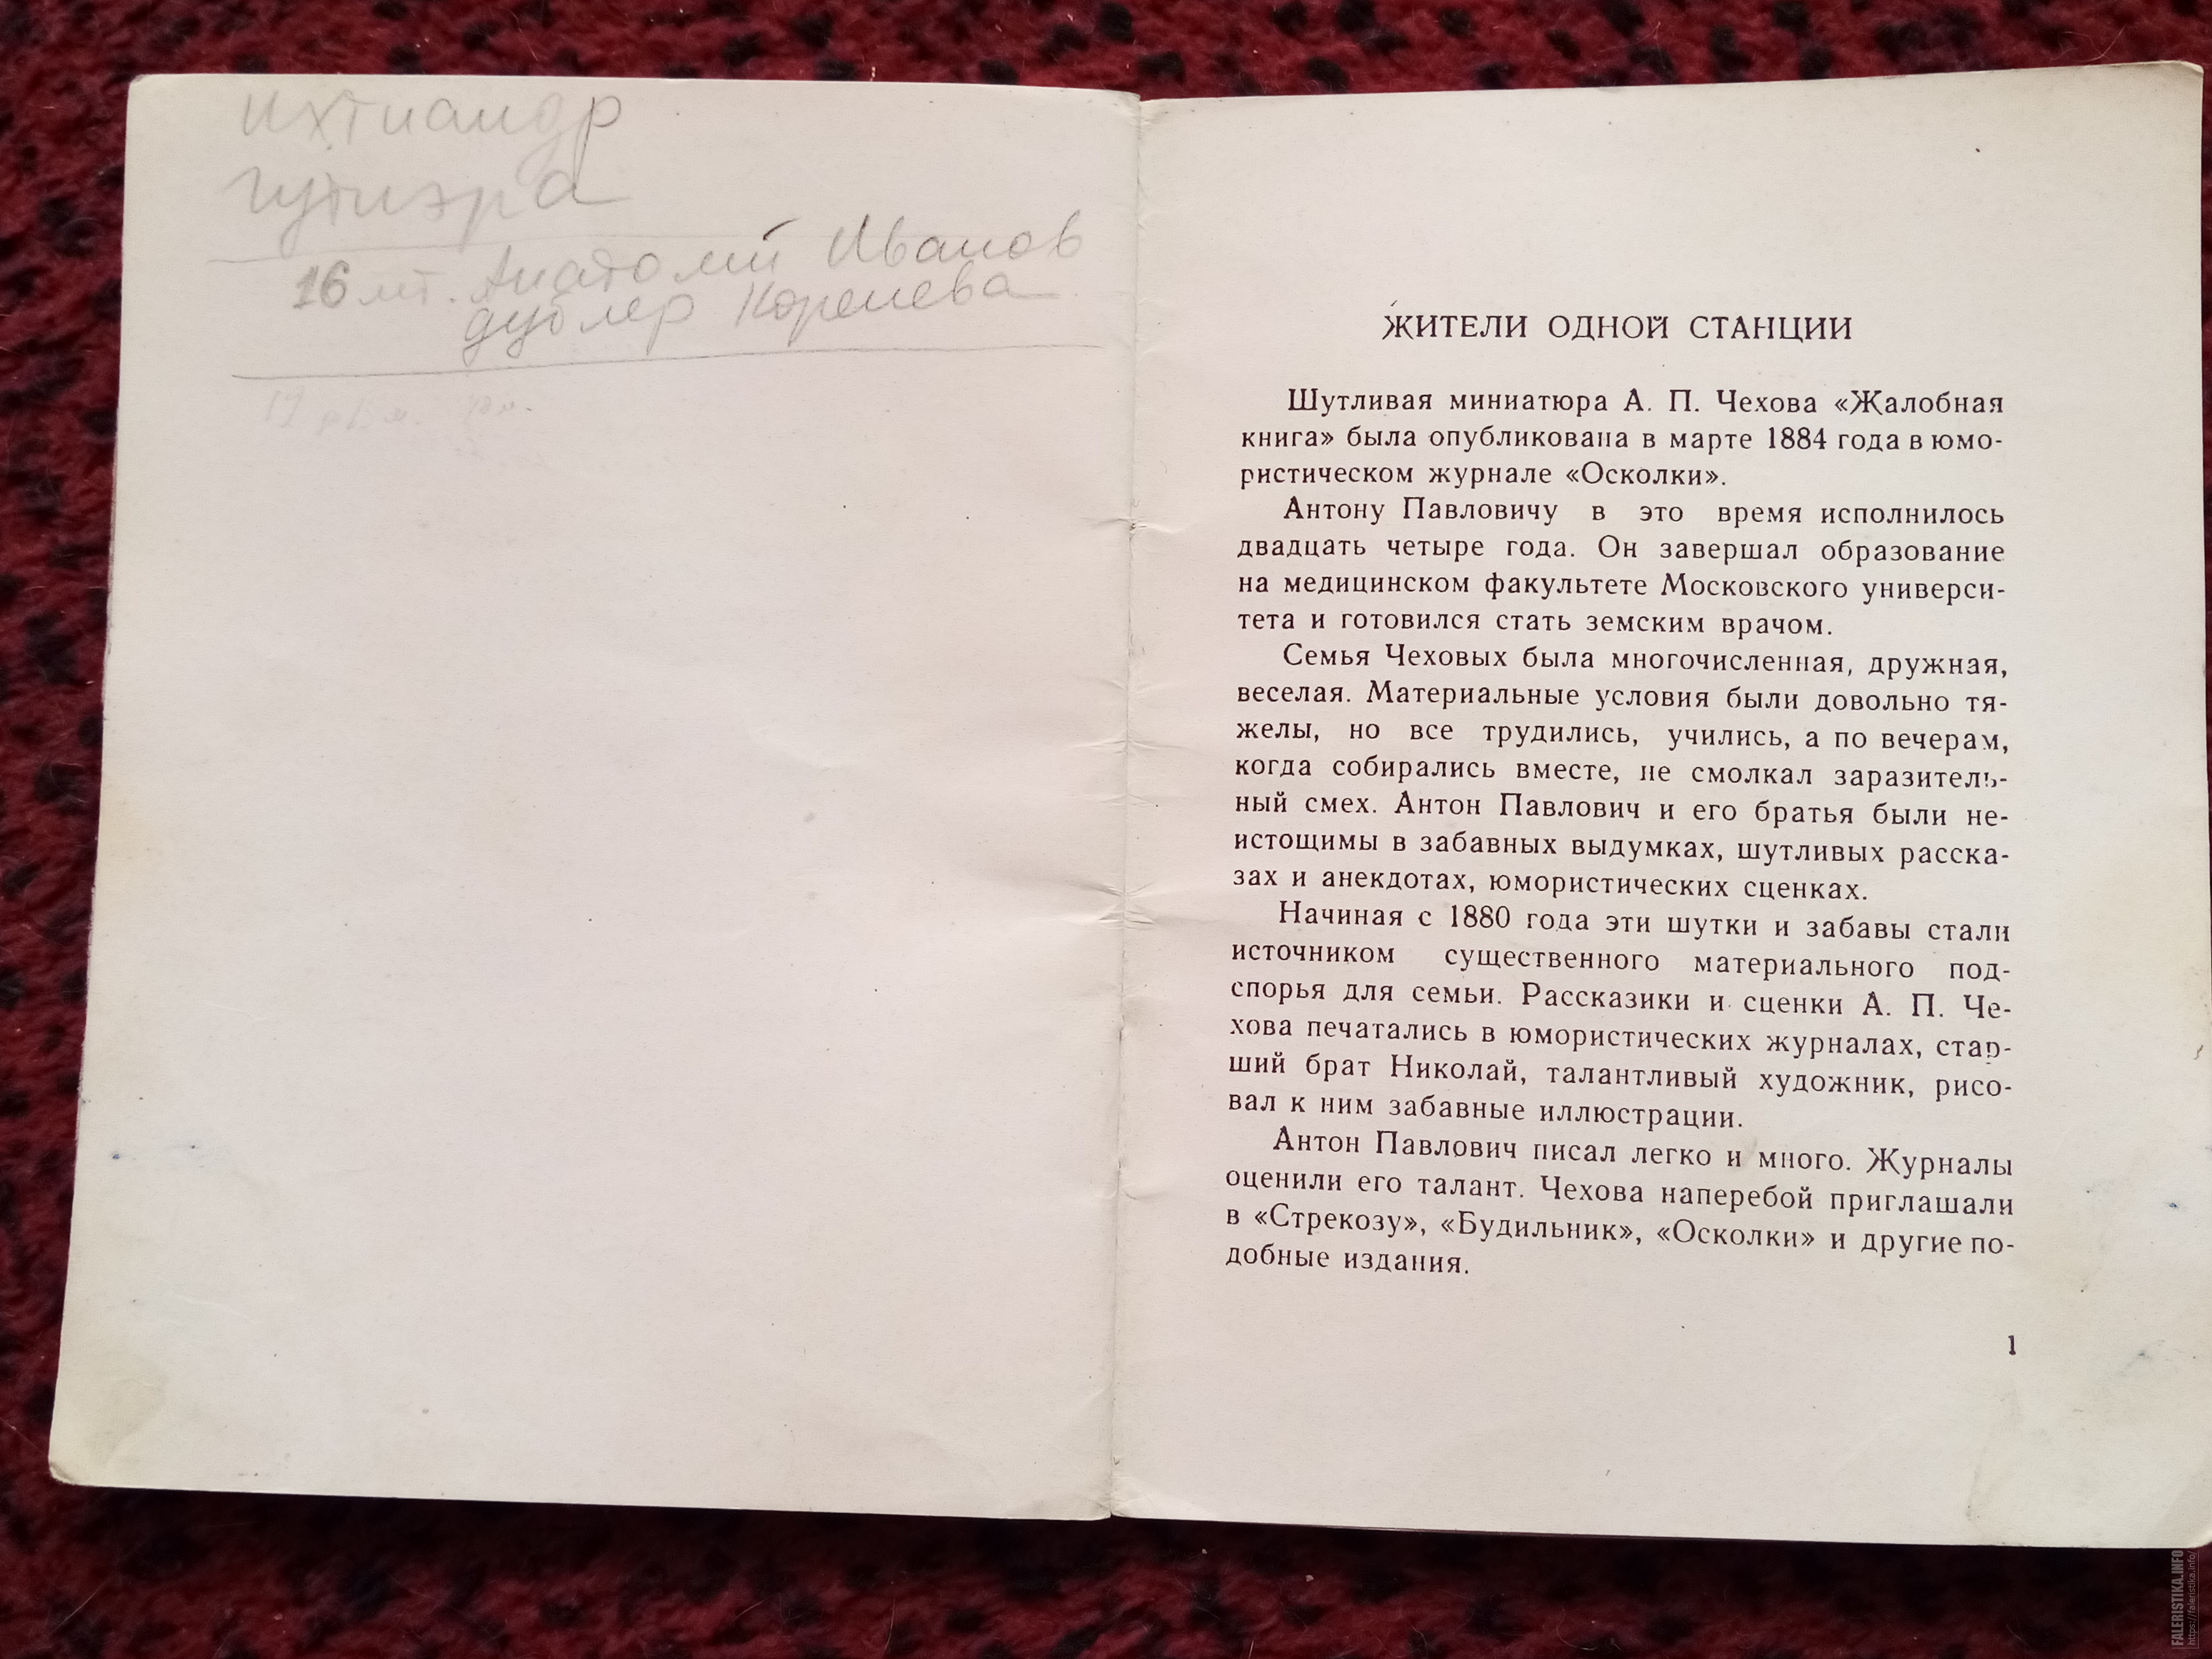 ихтиандр
гутиэра
16 лет. Анатолий Иванов
дублер Коренева
ЖИТЕЛИ ОДНОЙ СТАНЦИИ
Шутливая миниатюра А. П. Чехова «Жалобная
книга» была опубликована в марте 1884 года в юмо-
ристическом журнале «Осколки».
Антону Павловичу в это время исполнилось
двадцать четыре года. Он завершал образование
на медицинском факультете Московского универси-
тета и готовился стать земским врачом.
Семья Чеховых была многочисленная, дружная,
веселая. Материальные условия были довольно тя-
желы, но все трудились, учились, а по вечерам,
когда собирались вместе, не смолкал заразитель-
ный смех. Антон Павлович и его братья были не-
истощимы в забавных выдумках, шутливых расска-
зах и анекдотах, юмористических сценках.
Начиная с 1880 года эти шутки и забавы стали
источником существенного материального под-
спорья для семьи. Рассказики и сценки А. П. Че-
хова печатались в юмористических журналах, стар-
ший брат Николай, талантливый художник, рисо-
вал к ним забавные иллюстрации.
Антон Павлович писал легко и много. Журналы
оценили его талант. Чехова наперебой приглашали
в «Стрекозу», «Будильник», «Осколки» и другие по-
добные издания.
1
FALERISTIKA.INFO
https://faleristika.info/